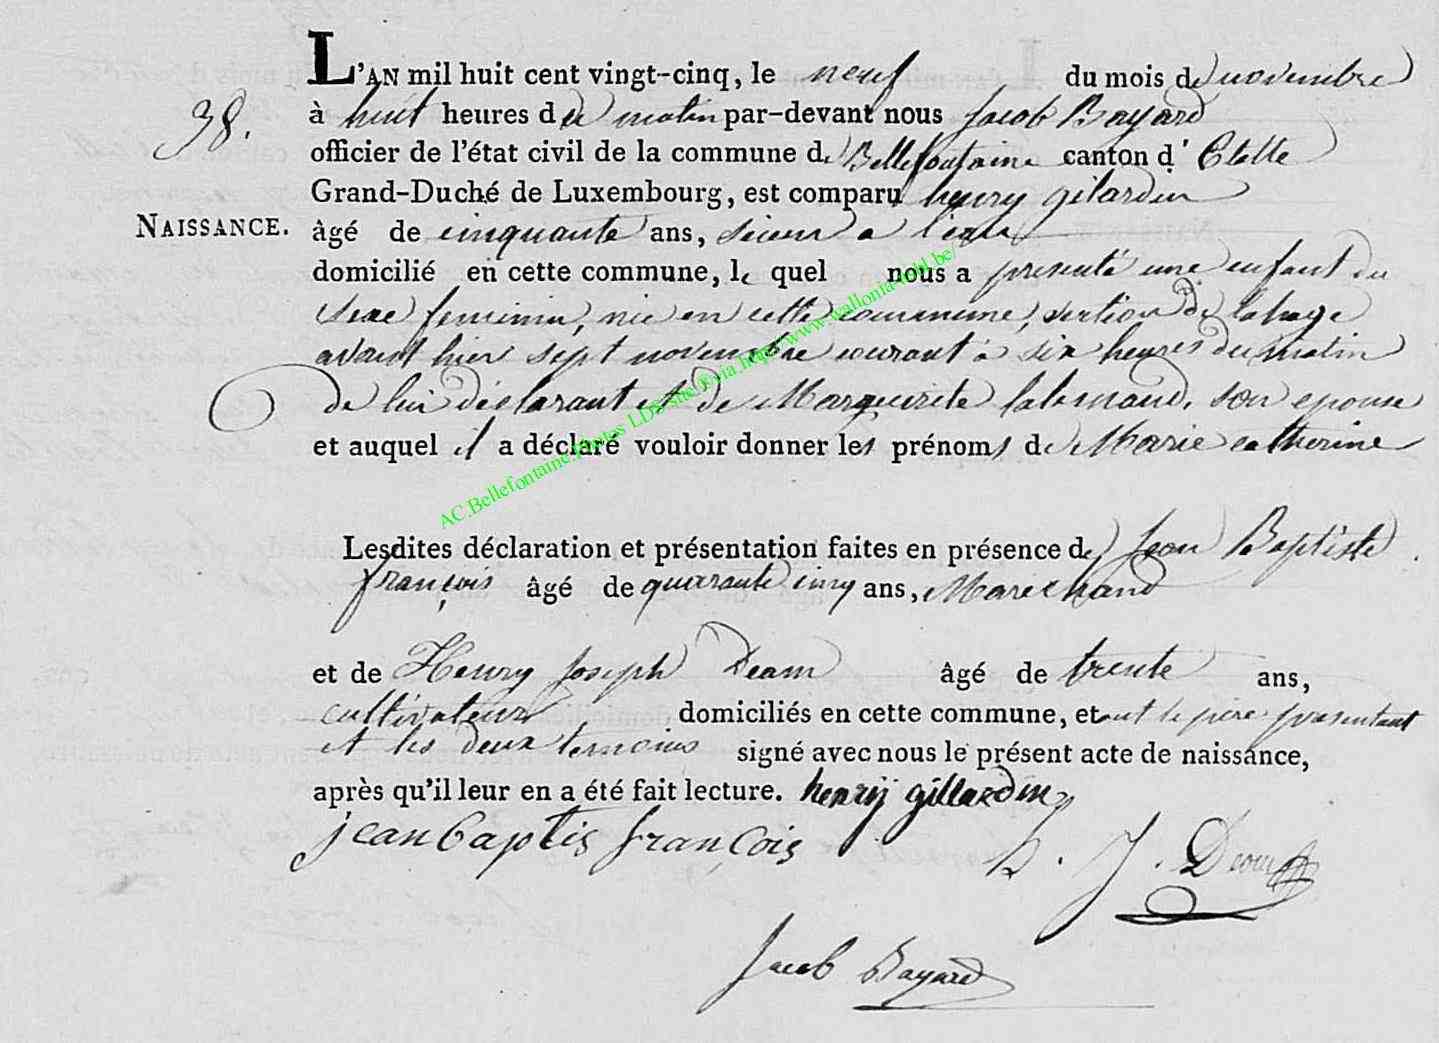 L'AN mil huit cent vingt-cinq, le neuf du mois de novembre
38. à huit heures du matin par-devant nous Jacob Bayard
officier de l'état civil de la commune de Bellefontaine canton d' Etalle
Grand-Duché de Luxembourg, est comparu henry gilardin
NAISSANCE. âgé de cinquante ans, sieur a l'eau
domicilié en cette commune, le quel nous a presenté une enfant du
sexe feminin, née en cette commune, section de lahage
avant hier sept novembre courant à six heures du matin
de lui déclarant et de Marguerite lalemand, son epouse
et auquel il a déclaré vouloir donner les prénoms de Marie catherine
AC.Bellefontaine.Photos LDS.site.via http://www.wallonia-
Lesdites déclaration et présentation faites en présence de Jean Baptiste
françois âgé de quarante cinq ans, Marechand
et de Henry Joseph Deom âgé de trente ans,
cultivateur domiciliés en cette commune, et ont le pere presentant
et les deux temoins signé avec nous le présent acte de naissance,
après qu'il leur en a été fait lecture. henrij gillardin
jean baptis françois h. J. Deom
Jacob Bayard